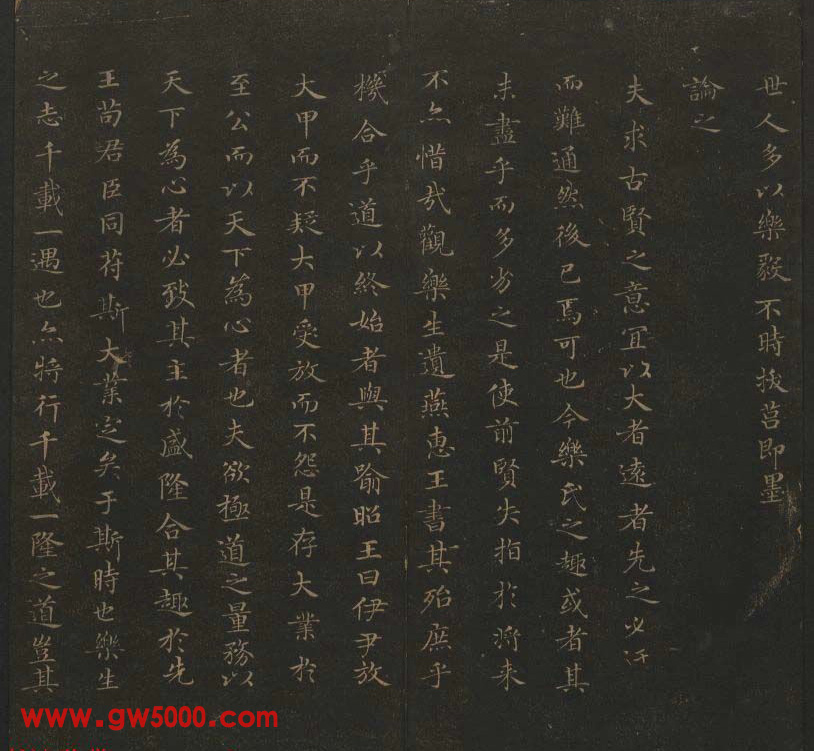 世人多以樂毅不時拔莒即墨
論之
夫求古賢之意宜以大者遠者先之必迂
而難通然後已焉可也今樂氏之趣或者其
未盡乎而多劣之是使前賢失指於將來
不亦惜哉觀樂生遺燕惠王書其殆庶乎
機合乎道以終始者與其喻昭王曰伊尹放
大甲而不疑大甲受放而不怨是存大業於
至公而以天下為心者也夫欲極道之量務以
天下為心者必致其主於盛隆合其趣於先
王苟君臣同符斯大業定矣于斯時也樂生
之志千載一遇也亦將行千載一隆之道豈其
www.gw5000.com